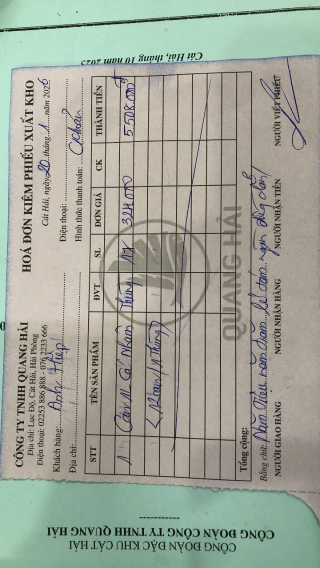 Cát Hải, tháng 10 năm 2025
CÔNG TY TNHH QUANG HẢI
Địa chỉ: Lục Độ, Cát Hải, Hải Phòng
Điện thoại: 02253 886 888 - 076 2233 666
HOÁ ĐƠN KIÊM PHIẾU XUẤT KHO
Cát Hải, ngày 20 tháng 1 năm 2026
Khách hàng: Anh Hiệp
Điện thoại:
Địa chỉ:
Hình thức thanh toán:
STT TÊN SẢN PHẨM ĐVT SL ĐƠN GIÁ CK THÀNH TIỀN
1 Cá Nhâm Thùng 17 324.000 5508.000đ
QUANG HẢI
Tổng cộng:
Bằng chữ: Năm Triệu năm trăm lẻ tám ngàn đồng
NGƯỜI GIAO HÀNG NGƯỜI NHẬN HÀNG NGƯỜI NHẬN TIỀN NGƯỜI VIẾT PHIẾU
CÔNG ĐOÀN ĐẶC KHU CÁT HẢI
CÔNG ĐOÀN CÔNG TY TNHH QUANG HẢI